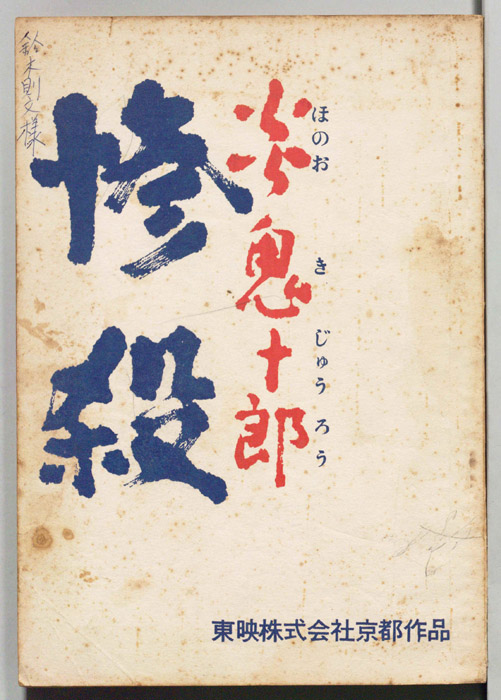 鈴木則文様
ほのお き じゅうろう
炎鬼十郎
惨殺
東映株式会社京都作品